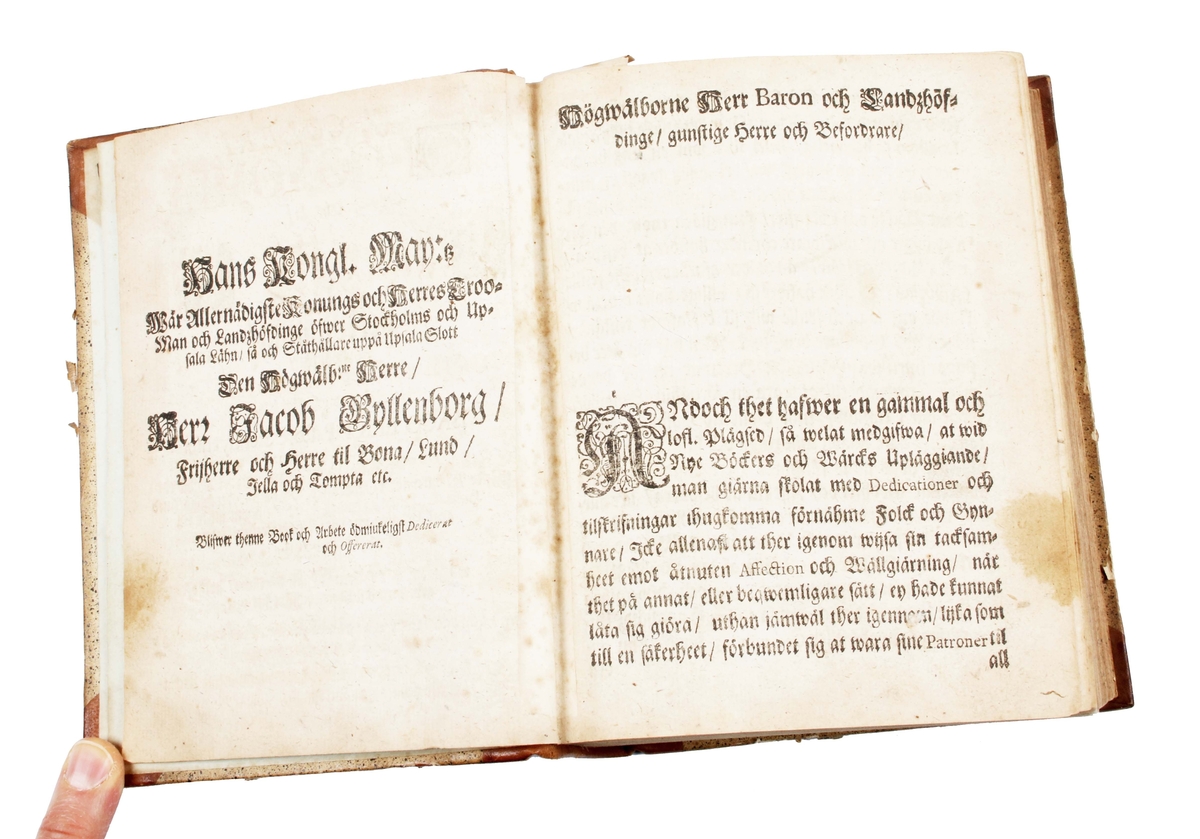 Hans Kongl. May:tz
Wår Allernådigste Konungs och Herres Troo-
Man och Landzhöfdinge öfwer Stockholms och Up-
sala Lähn/ så och Ståthållare uppå Upsala Slott
Den Högwälb:ne Herre/
Herr Jacob Gyllenborg/
Frijherre och Herre til Bona/ Lund/
Jella och Tompta etc.
Blifwer thenne Book och Arbete ödmiukeligst Dedicerat
och Offererat.
Högwälborne Herr Baron och Landzhöf-
dinge/ gunstige Herre och Befordrare/
ANdoch thet hafwer en gammal och
lofl. Plägsed/ så welat medgifwa/ at wid
Nye Böckers och Wärcks Upläggiande/
man giärna skolat med Dedicationer och
tilskrifningar ihugkomma förnähme Folck och Gyn-
nare/ Icke allenast att ther igenom wijsa sin tacksam-
heet emot åtnuten Affection och Wällgiärning/ när
thet på annat/ eller beqwemligare sätt/ ey hade kunnat
låta sig giöra/ uthan jämwäl ther igennom/ lijka som
till en säkerheet/ förbundet sig at wara sine Patroner til
all